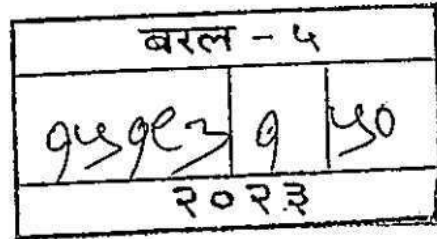 बरल - ५
१५१९३ १ ५०
२०२३